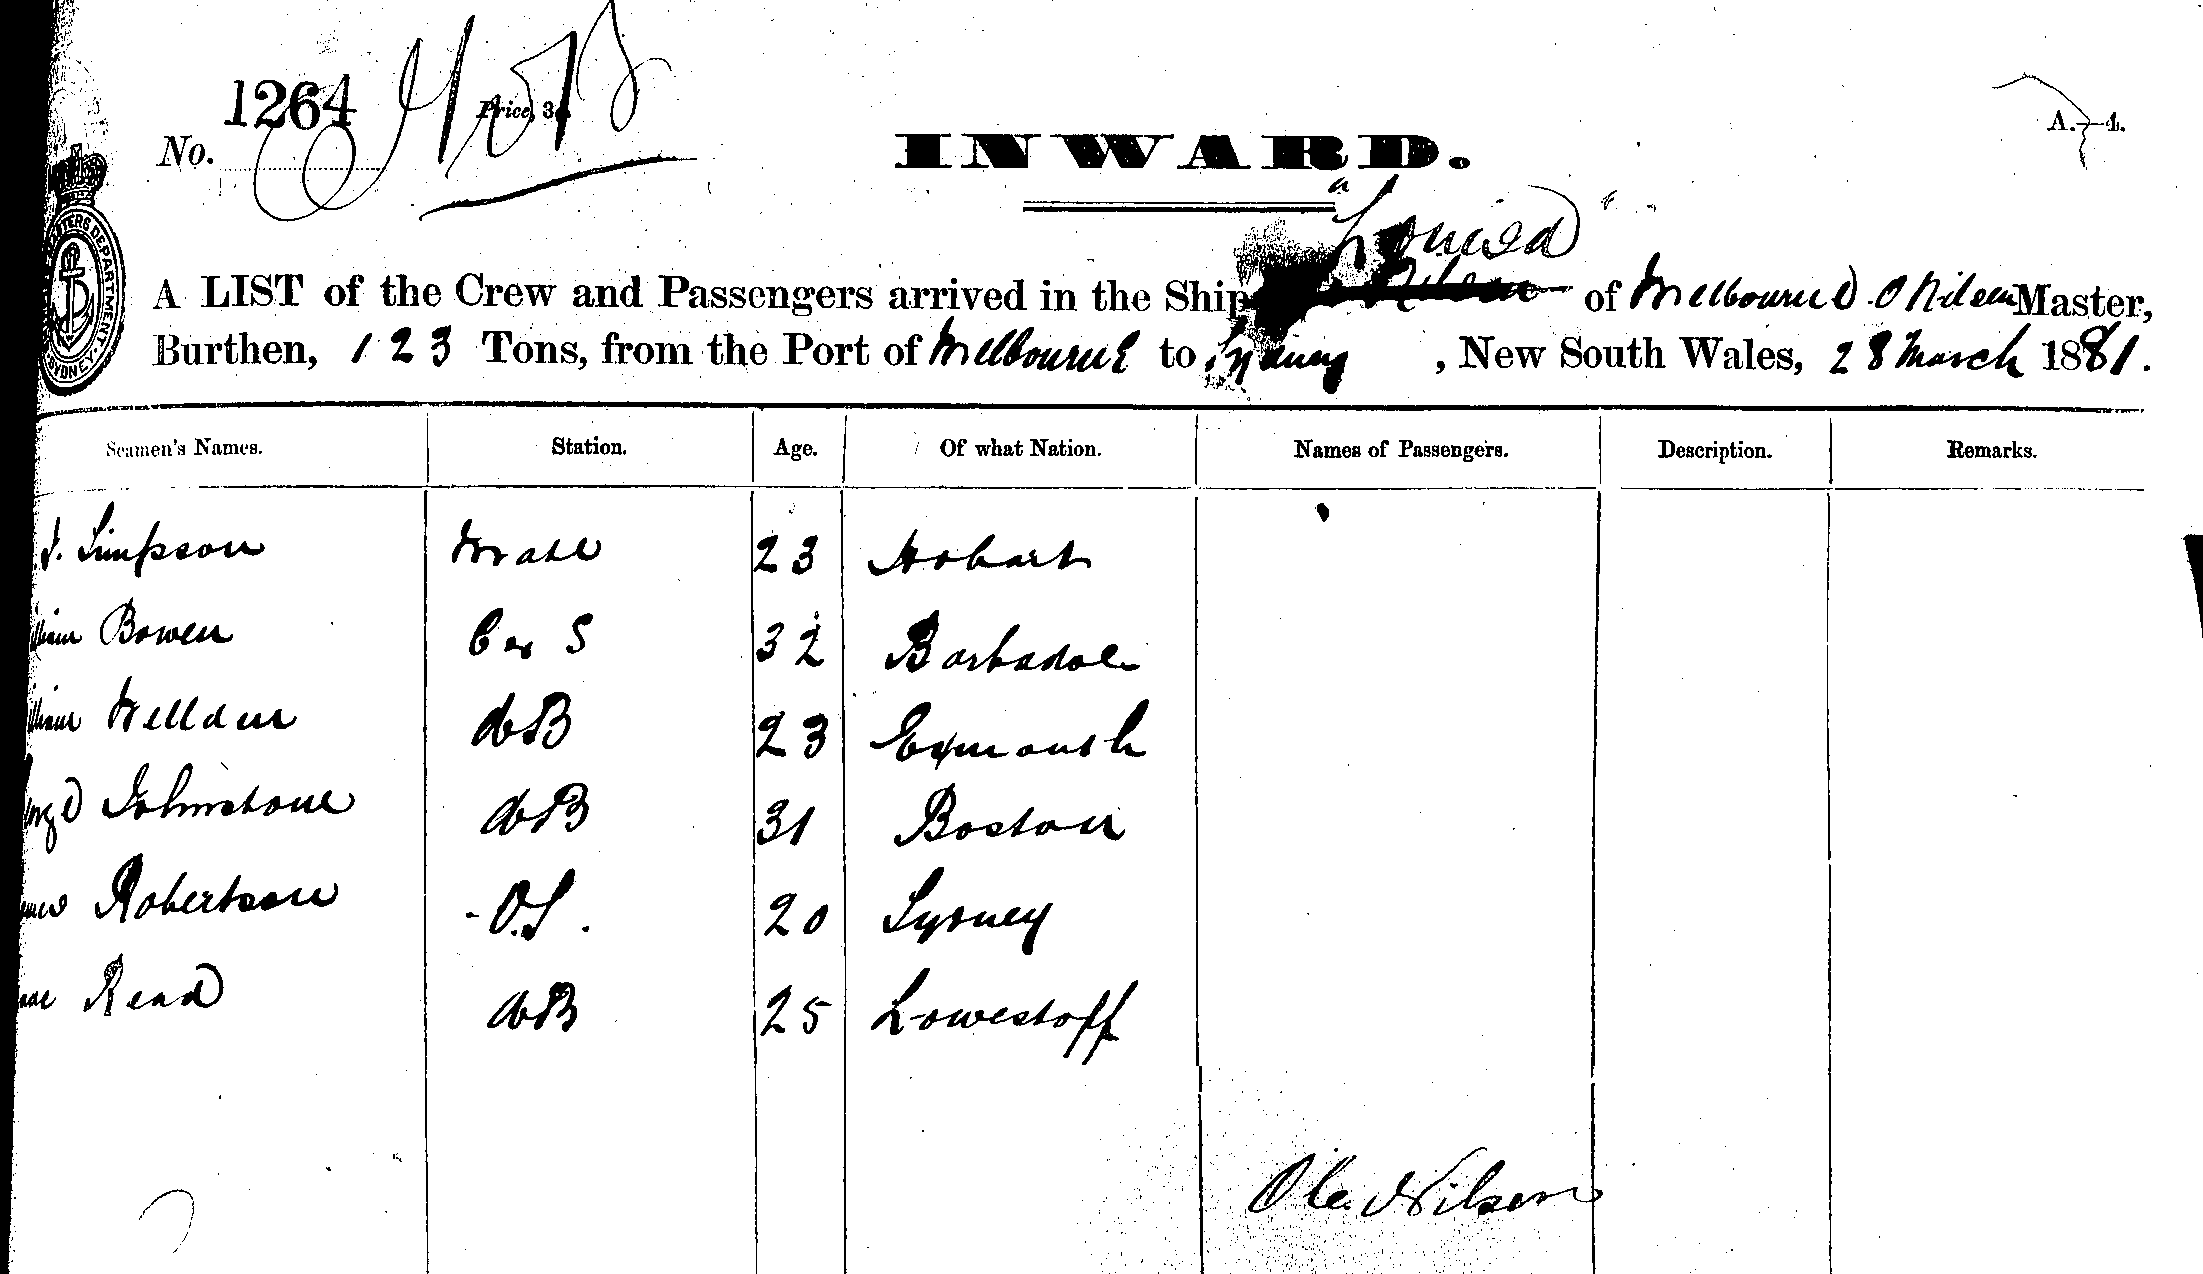 1264
Price, 3d.
No.
INWARD.
A.—4.
"Louisa"
A LIST of the Crew and Passengers arrived in the Ship of Melbourne O Nilsen Master,
Burthen, 123 Tons, from the Port of Melbourne to Sydney, New South Wales, 28 March 1881.
Seamen's Names. Station. Age. Of what Nation. Names of Passengers. Description. Remarks.
J. Simpson Mate 23 Hobart
Bowen S 32 Barbadoes
AB 23 Exmouth
Johnstone AB 31 Boston
Robertson O.S. 20 Sydney
Read AB 25 Lowestoff
Ole Nilsen